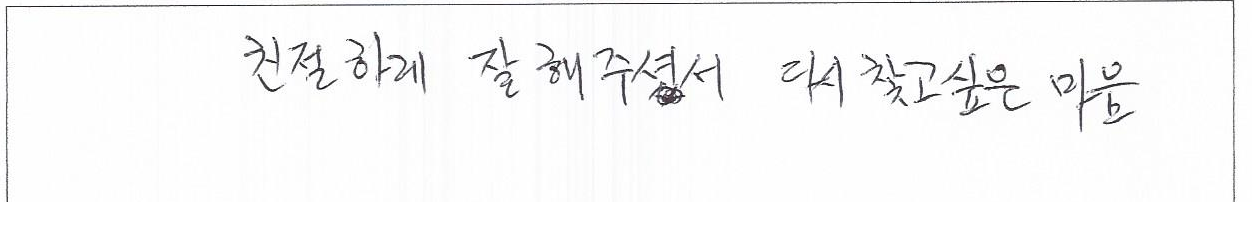 친절하게 잘 해주셔서 다시 찾고싶은 마음